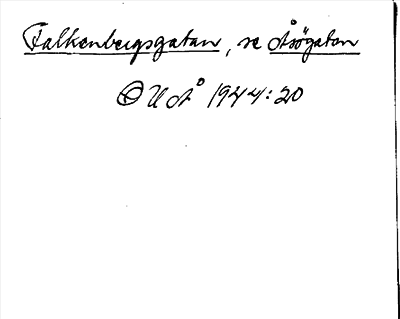 Falkenbergsgatan, se Åsögatan
UÅ 1944:20